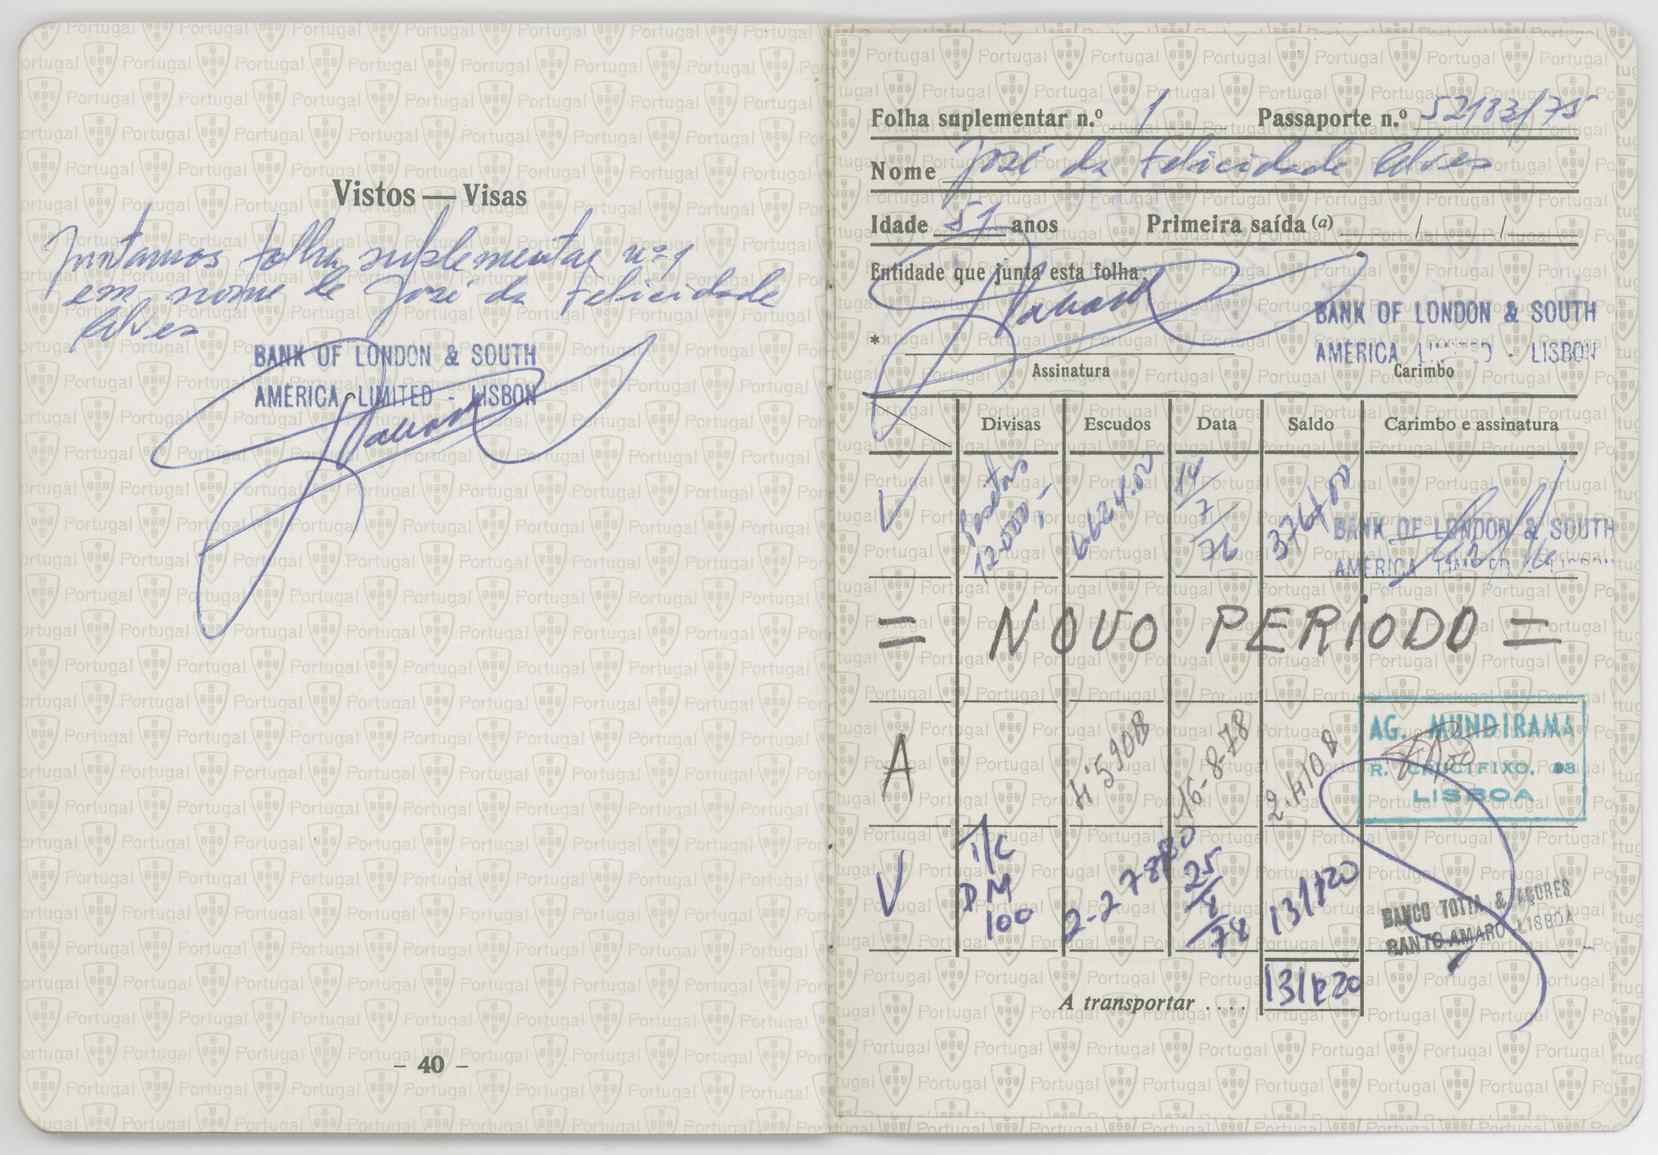 Vistos — Visas
Juntamos folha suplementar nº 1
em nome de José da Felicidade
Alves
BANK OF LONDON & SOUTH
AMERICA LIMITED - LISBON
– 40 –
Folha suplementar n.º 1 Passaporte n.º 52183/75
Nome José da Felicidade Alves
Idade 51 anos Primeira saída (a) / /
Entidade que junta esta folha:
BANK OF LONDON & SOUTH
AMERICA LIMITED - LISBON
*
Assinatura Carimbo
Divisas Escudos Data Saldo Carimbo e assinatura
V Pesetas 12.000,- 6624.00 14/7/76 376$00
BANK OF LONDON & SOUTH
AMERICA
= NOVO PERÍODO =
A 4.590$ 16-8-78 2.410$
AG. MUNDIRAMA
R. CRUCIFIXO,
LISBOA
V T/C DM 100 25/8/78 131$20
BANCO TOTTA & AÇORES
SANTO AMARO LISBOA
A transportar ..... 131$20